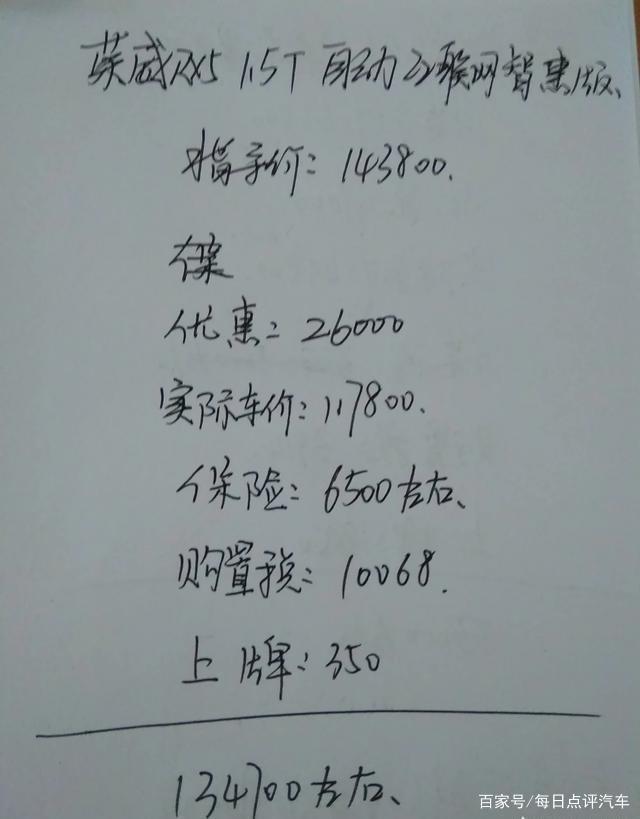 英威RX5 1.5T 自动互联网智惠版、
指导价：143800.
优惠：26000
实际车价：117800.
保险：6500左右、
购置税：10068.
上牌：350
134700左右、
百家号/每日点评汽车